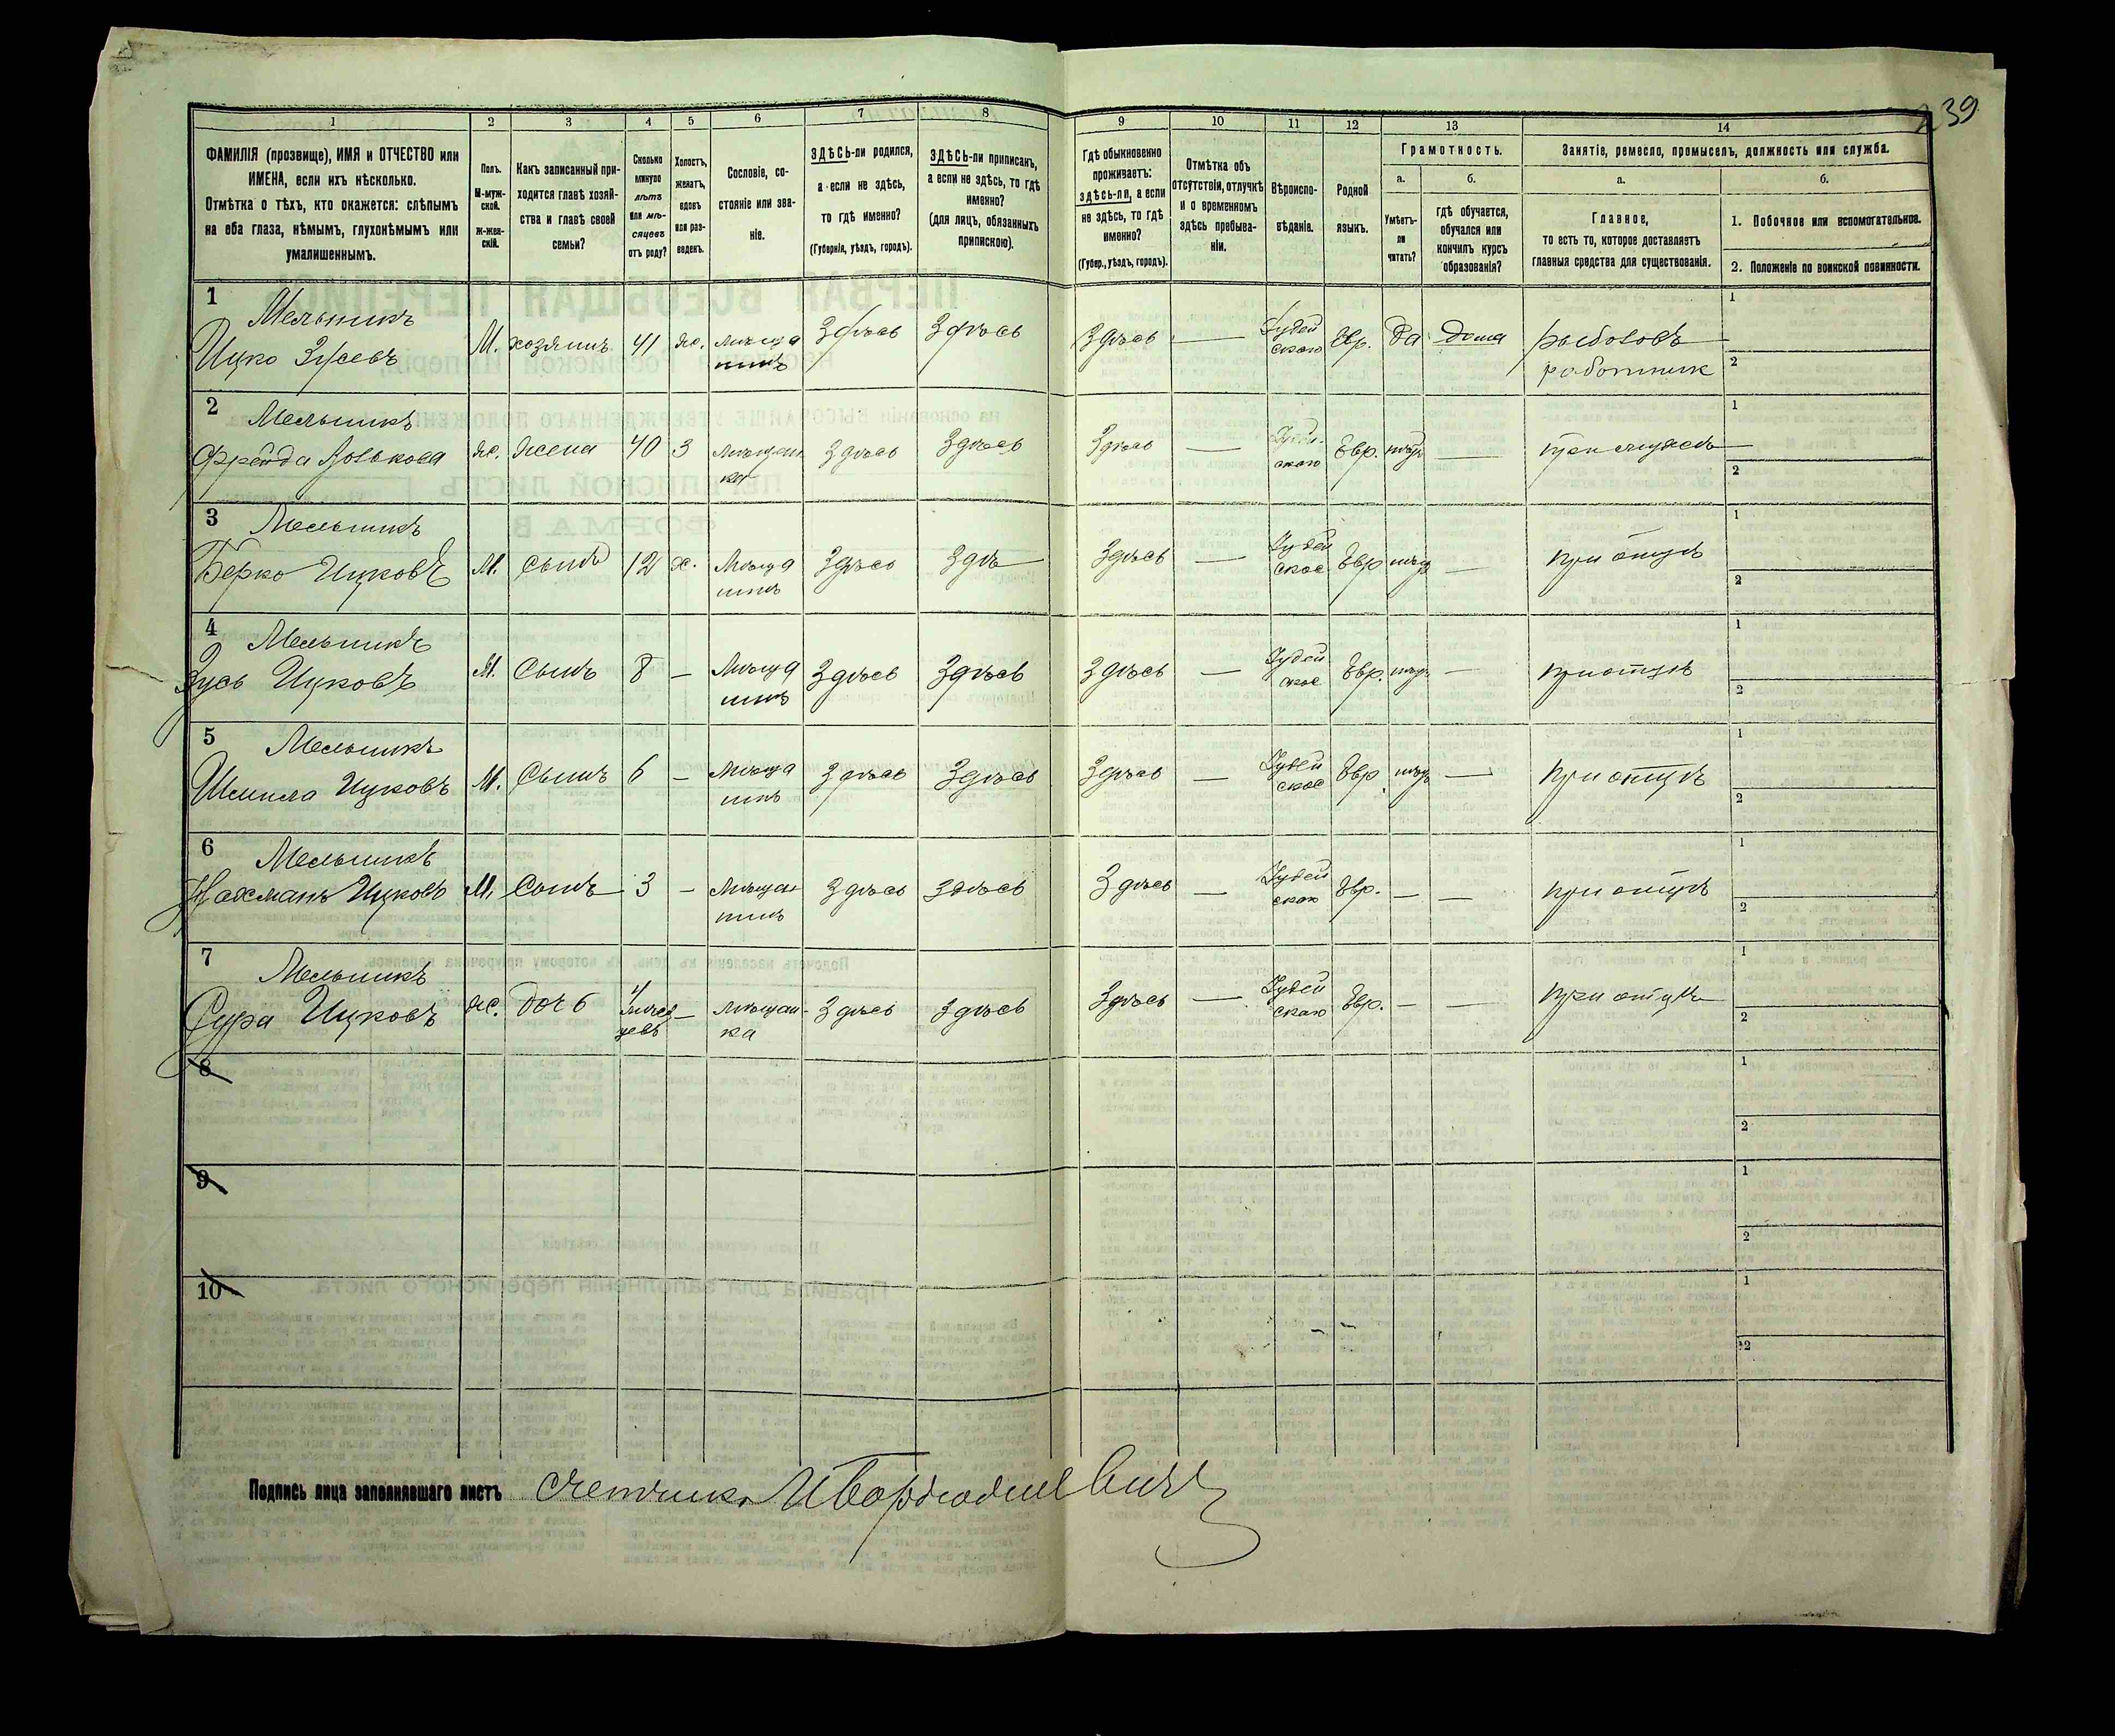 239
1 2 3 4 5 6 7 8 9 10 11 12 13 14
ФАМИЛІЯ (прозвище), ИМЯ и ОТЧЕСТВО или
ИМЕНА, если ихъ нѣсколько.
Отмѣтка о тѣхъ, кто окажется: слѣпымъ
на оба глаза, нѣмымъ, глухонѣмымъ или
умалишеннымъ.
Полъ.
М-муж-
ской.
Ж-жен-
скій.
Какъ записанный при-
ходится главѣ хозяй-
ства и главѣ своей
семьи?
Сколько
минуло
лѣтъ
или мѣ-
сяцевъ
отъ роду?
Холостъ,
женатъ,
вдовъ
или раз-
веденъ.
Сословіе, со-
стояніе или зва-
ніе.
ЗДѢСЬ-ли родился,
а если не здѣсь,
то гдѣ именно?
(Губернія, уѣздъ, городъ).
ЗДѢСЬ-ли приписанъ,
а если не здѣсь, то гдѣ
именно?
(для лицъ, обязанныхъ
припискою).
Гдѣ обыкновенно
проживаетъ:
здѣсь-ли, а если
не здѣсь, то гдѣ
именно?
(Губер., уѣздъ, городъ).
Отмѣтка объ
отсутствіи, отлучкѣ
и о временномъ
здѣсь пребыва-
ніи.
Вѣроиспо-
вѣданіе.
Родной
языкъ.
Грамотность.
а.
Умѣетъ-
ли
читать?
б.
гдѣ обучается,
обучался или
кончилъ курсъ
образованія?
Занятіе, ремесло, промыселъ, должность или служба.
а.
Главное,
то есть то, которое доставляетъ
главныя средства для существованія.
б.
1. Побочное или вспомогательное.
2. Положеніе по воинской повинности.
1 Мельникъ
Ицко Зусевъ М. хозяинъ 41 ж. мѣща Здѣсь Здѣсь Здѣсь — Іудей Евр. Да дома рыболовъ 1
нинъ ское работник 2
2 Мельникъ
Фрейда Жена 40 З мѣщан Здѣсь Здѣсь Здѣсь — Іудей Евр. нѣтъ — при мужѣ 1
ка ское 2
3 Мельникъ
Берко Ицковъ М. Сынъ 12 х. Мѣща Здѣсь Здѣ Здѣсь — Іудей Евр нѣтъ — при отцѣ 1
нинъ ское 2
4 Мельникъ
Зусь Ицковъ М. Сынъ 8 — Мѣща Здѣсь Здѣсь Здѣсь — Іудей Евр. нѣтъ — при отцѣ 1
нинъ ское 2
5 Мельникъ
Шмила Ицковъ М. Сынъ 6 — Мѣща Здѣсь Здѣсь Здѣсь — Іудей Евр нѣтъ — при отцѣ 1
нинъ ское 2
6 Мельникъ
Нахманъ Ицковъ М. Сынъ 3 — Мѣщан Здѣсь Здѣсь Здѣсь — Іудей Евр. — — при отцѣ 1
нинъ ское 2
7 Мельникъ
Сура Ицковъ ж. дочь мѣщан Здѣсь Здѣсь Здѣсь — Іудей Евр. — — при отцѣ 1
ка ское 2
8 1
2
9 1
2
10 1
2
Подпись лица заполнявшаго листъ Счетчикъ